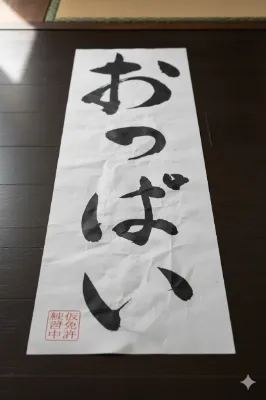 おっぱい
仮免許
練習中